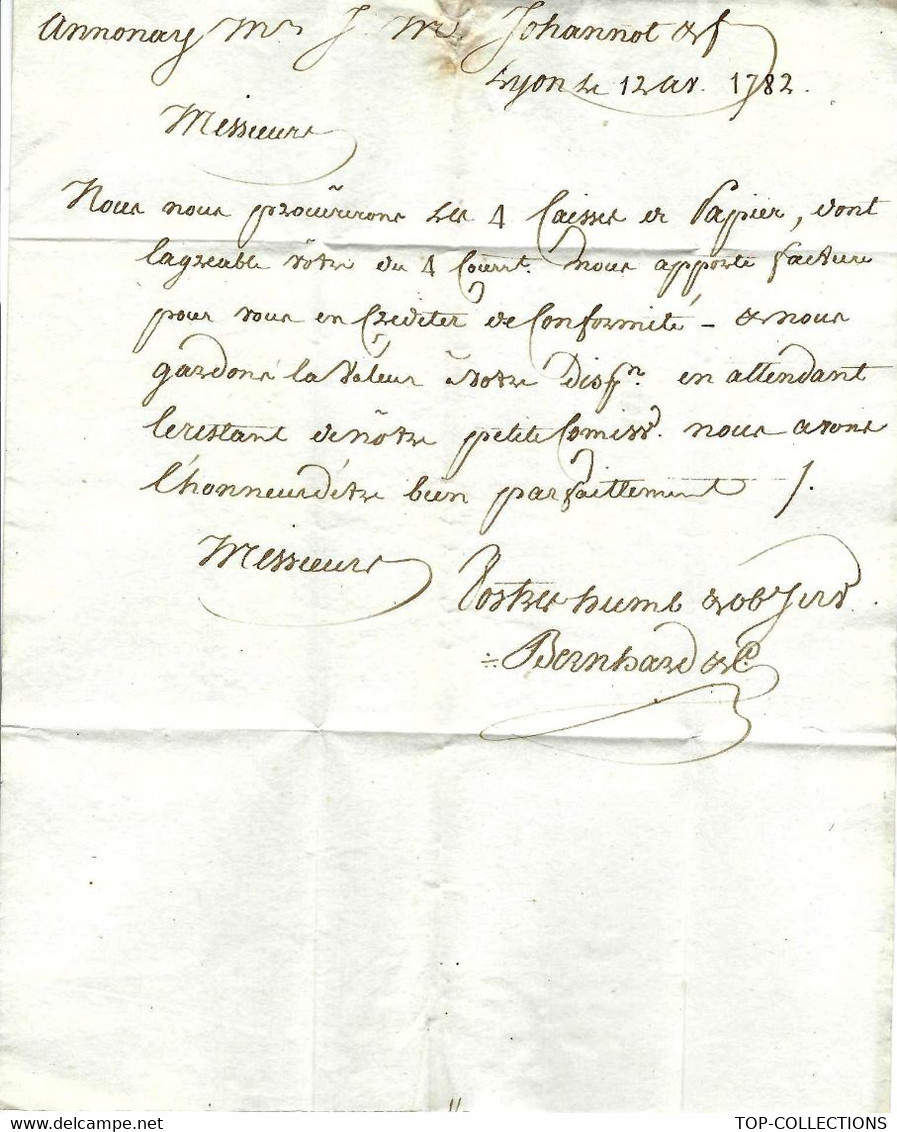 Annonay Mrs J. M. Johannot & f
Lyon Le 12 av. 1782.
Messieurs
Nous nous procurerons Les 4 Caisses de Papier, dont
lagreable vôtre du 4 Courrt. nous apporte facture
pour vous en Crediter de Conformité - & nous
gardons la Valeur à votre Dispn. en attendant
le restant de nôtre petite Comissn. nous avons
l'honneur d'être bien parfaittement /.
Messieurs
Vos tres humb & ob Servs
Bernhard & Ce.
TOP-COLLECTIONS